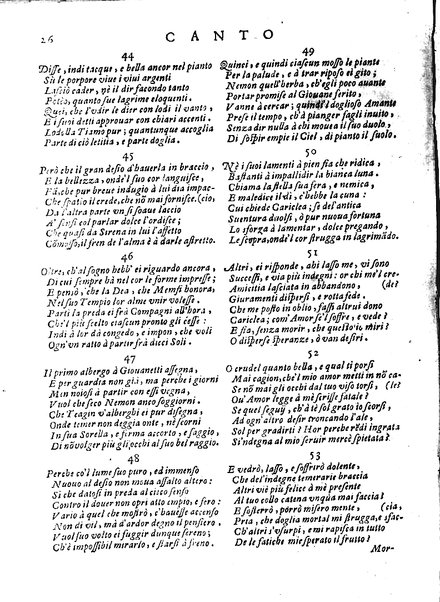 26
CANTO
44
Disse, indi tacque, e bella ancor nel pianto
Sù le porpore viue i viui argenti
Lasciò cader, vè il dir facondo tanto
Petèo, quanto sue lagrime eloquenti.
Quei, che l'odir le dier con lodi il vanto,
E i suoi detti approuar con chiari accenti.
Lodella Tiamo pur; quantunque accoglia
Parte di ciò letitia, e parte doglia.
45
Però che il gran desio d'hauerla in braccio,
E la bellezza, onde'l suo cor languisce,
Fà, che pur breue indugio à lui dia impac-
Che spatio il crede, che nō mai fornisce. (cio,
Da l'altra parte vn si soaue laccio
A' sensi col parlar dolce l'ordisce;
Che quasi da Sirena in lui l'affetto
Cōmosso, il fren de l'alma è à darle astretto.
46
Oltre, ch'al sogno hebb' ei riguardo ancora,
Di cui sempre hà nel cor le forme impresse;
E pensò, che la Dea, che Menfi honora,
Nel suo Tempio lor alme vnir volesse.
Partì la preda ei frà Compagni all'hora,
Che'l più scelto ciascun pronto gli cesse:
Indi à lor dà congedo, e impon, che voli
Ogn'vn ratto à partir dieci Soli.
47
Il primo albergo à Giouanetti assegna,
E per guardia non già, ma perche i giorni
Men noiosi à partir con essi vegna,
Vuol che seco Nemon anco soggiorni.
Che Teagin s'alberghi ei pur disegna,
Onde temer non deggia onte, nè scorni
In sua Sorella, e ferma accorto, e saggio,
Di nō volger più gli occhi al suo bel raggio.
48
Perche co'l lume suo puro, ed immenso
Nuouo al desio non moua assalto altero:
Sì che datosi in preda al cieco senso
Contro il douer non opri atto empio, e fero:
Vario à quel che mostrò, c'hauesse accenso
Non dì vil, ma d'ardor degno il pensiero,
Vuol suo volto ei fuggir dunque sereno;
Ch'è impossibil mirarlo, e starsi à freno.
49
Quinci, e quindi ciascun mosso le piante
Per la palude, e à trar riposo ei gito;
Nemon quell'herba, ch'egli poco auante
Portar promise al Giouane ferito,
Vanne à cercar; quindi'l doglioso Amante
Prese il tempo, ch'à pianger fagli inuito,
Senza dir nulla à chi mouea il suo duolo,
Di sospir empie il Ciel, di pianto il suolo.
50
Nè i suoi lamenti à pien sia che ridica,
Bastanti à impallidir la bianca luna.
Chiama la stella sua fera, e nemica,
E maledice il dì, c'hebbe la cuna:
Cui chiede Cariclea; se de l'antica
Suentura duolsi, ò pur nuoua fortuna
Lo sforza à lamentar, dolce pregando,
Le scopra, onde'l cor strugga in lagrimādo.
51
Altri, ei risponde, ahi lasso me, vi sono
Successi, e via più indegni: or chi me'l cre-
Amicitia lasciata in abbandono, (de)
Giuramenti dispersi, e rotta fede.
Che me posto in oblio, fassi altrui dono
Cariclea; com'Amor se'l soffre, e vede?
E sia, senza morir, che quest'orio miri?
O dispersi speranze, ò van desiri.
52
O crudel quanto bella, e qual ti porsi
Mai cagion, che'l mio amor metti in nō ca-
Se nō mai gli occhi dal tuo viso torsi, (le?
Qu'Amor legge à me rifisse fatale?
Se quel segui, ch'à tè sol grato io scorsi,
Ad ogn'altro desir troncando l'ale,
Sol per gradirti? Hor perche rēdi ingrata
Sì indegna al mio seruir mercè spietata?
53
E vedrò, lasso, e soffrirò dolente,
Che del'indegne temerarie braccia
Altri viè più felice à mè presente
Al tuo collo catena vnqua mai faccia?
E sosterrò, porrò misero mente, (cia,
Pria, che doglia mortal mi strugga, e sfac-
Ch'altri s'vsurpi, e mi rapisca in tutto
De le fatiche mie sperato il frutto?
Mor-